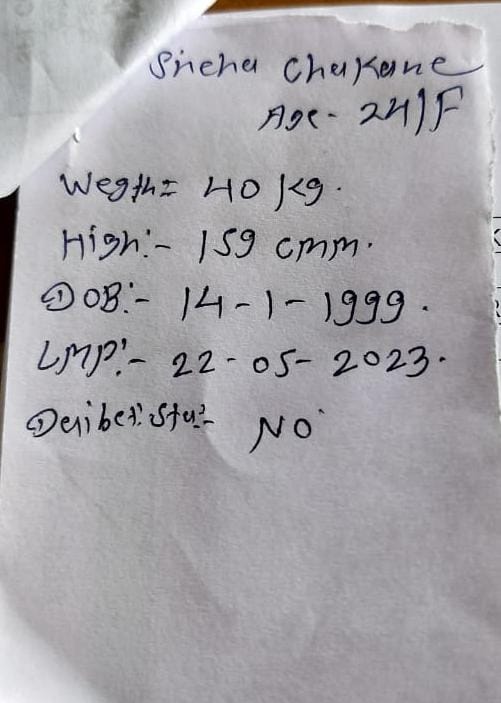 Sneha Chakane
Age - 24/F
Wegth = 40 kg.
High:- 159 cmm.
DOB:- 14-1-1999.
LMP:- 22-05-2023.
NO